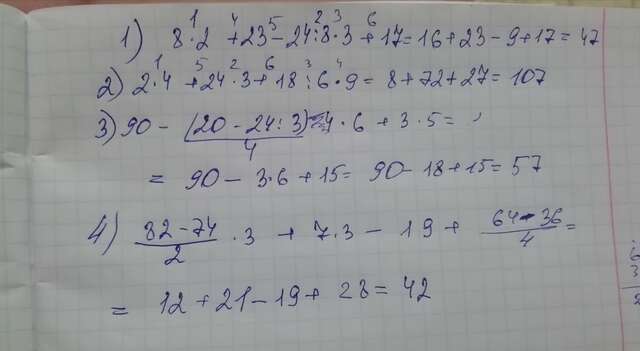 1) 8·2 + 23 - 24:8·3 + 17 = 16 + 23 - 9 + 17 = 47
2) 2·4 + 24·3 + 18:6·9 = 8 + 72 + 27 = 107
3) 90 - (20 - 24:3)/4 · 6 + 3·5 =
= 90 - 3·6 + 15 = 90 - 18 + 15 = 57
4) (82 - 74)/2 · 3 + 7·3 - 19 + (64 - 36)/4 =
= 12 + 21 - 19 + 28 = 42